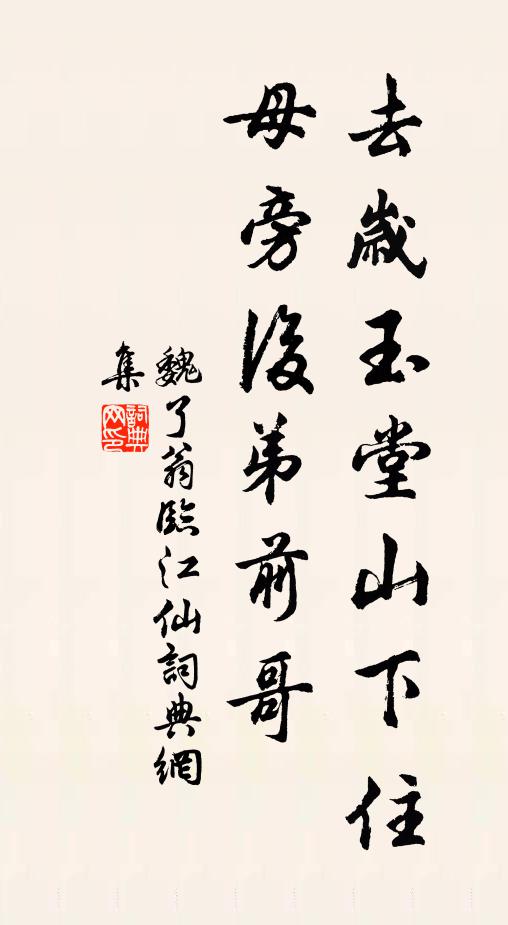 去歲玉堂山下住
母旁後弟前哥
魏了翁臨江仙詞典網
集
詞典
网印